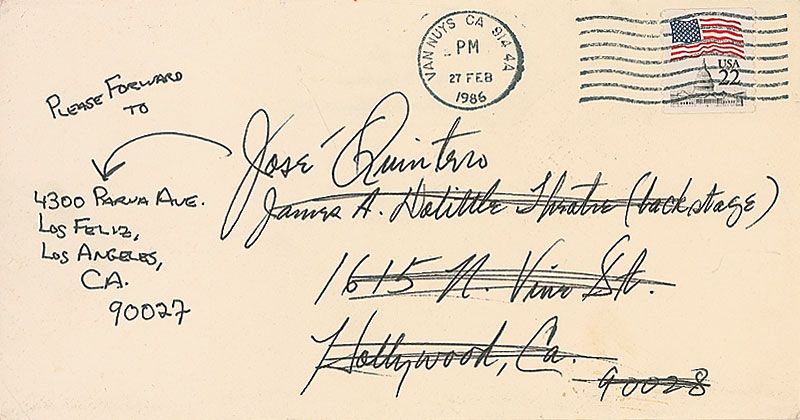 VAN NUYS CA 914 4A
PM
27 FEB
1986
USA
22
PLEASE FORWARD
TO
José Quintero
James A. Doolittle Theatre (backstage)
1615 N. Vine St.
Hollywood, Ca.
90028
4300 PARVA AVE.
LOS FELIZ,
LOS ANGELES,
CA.
90027